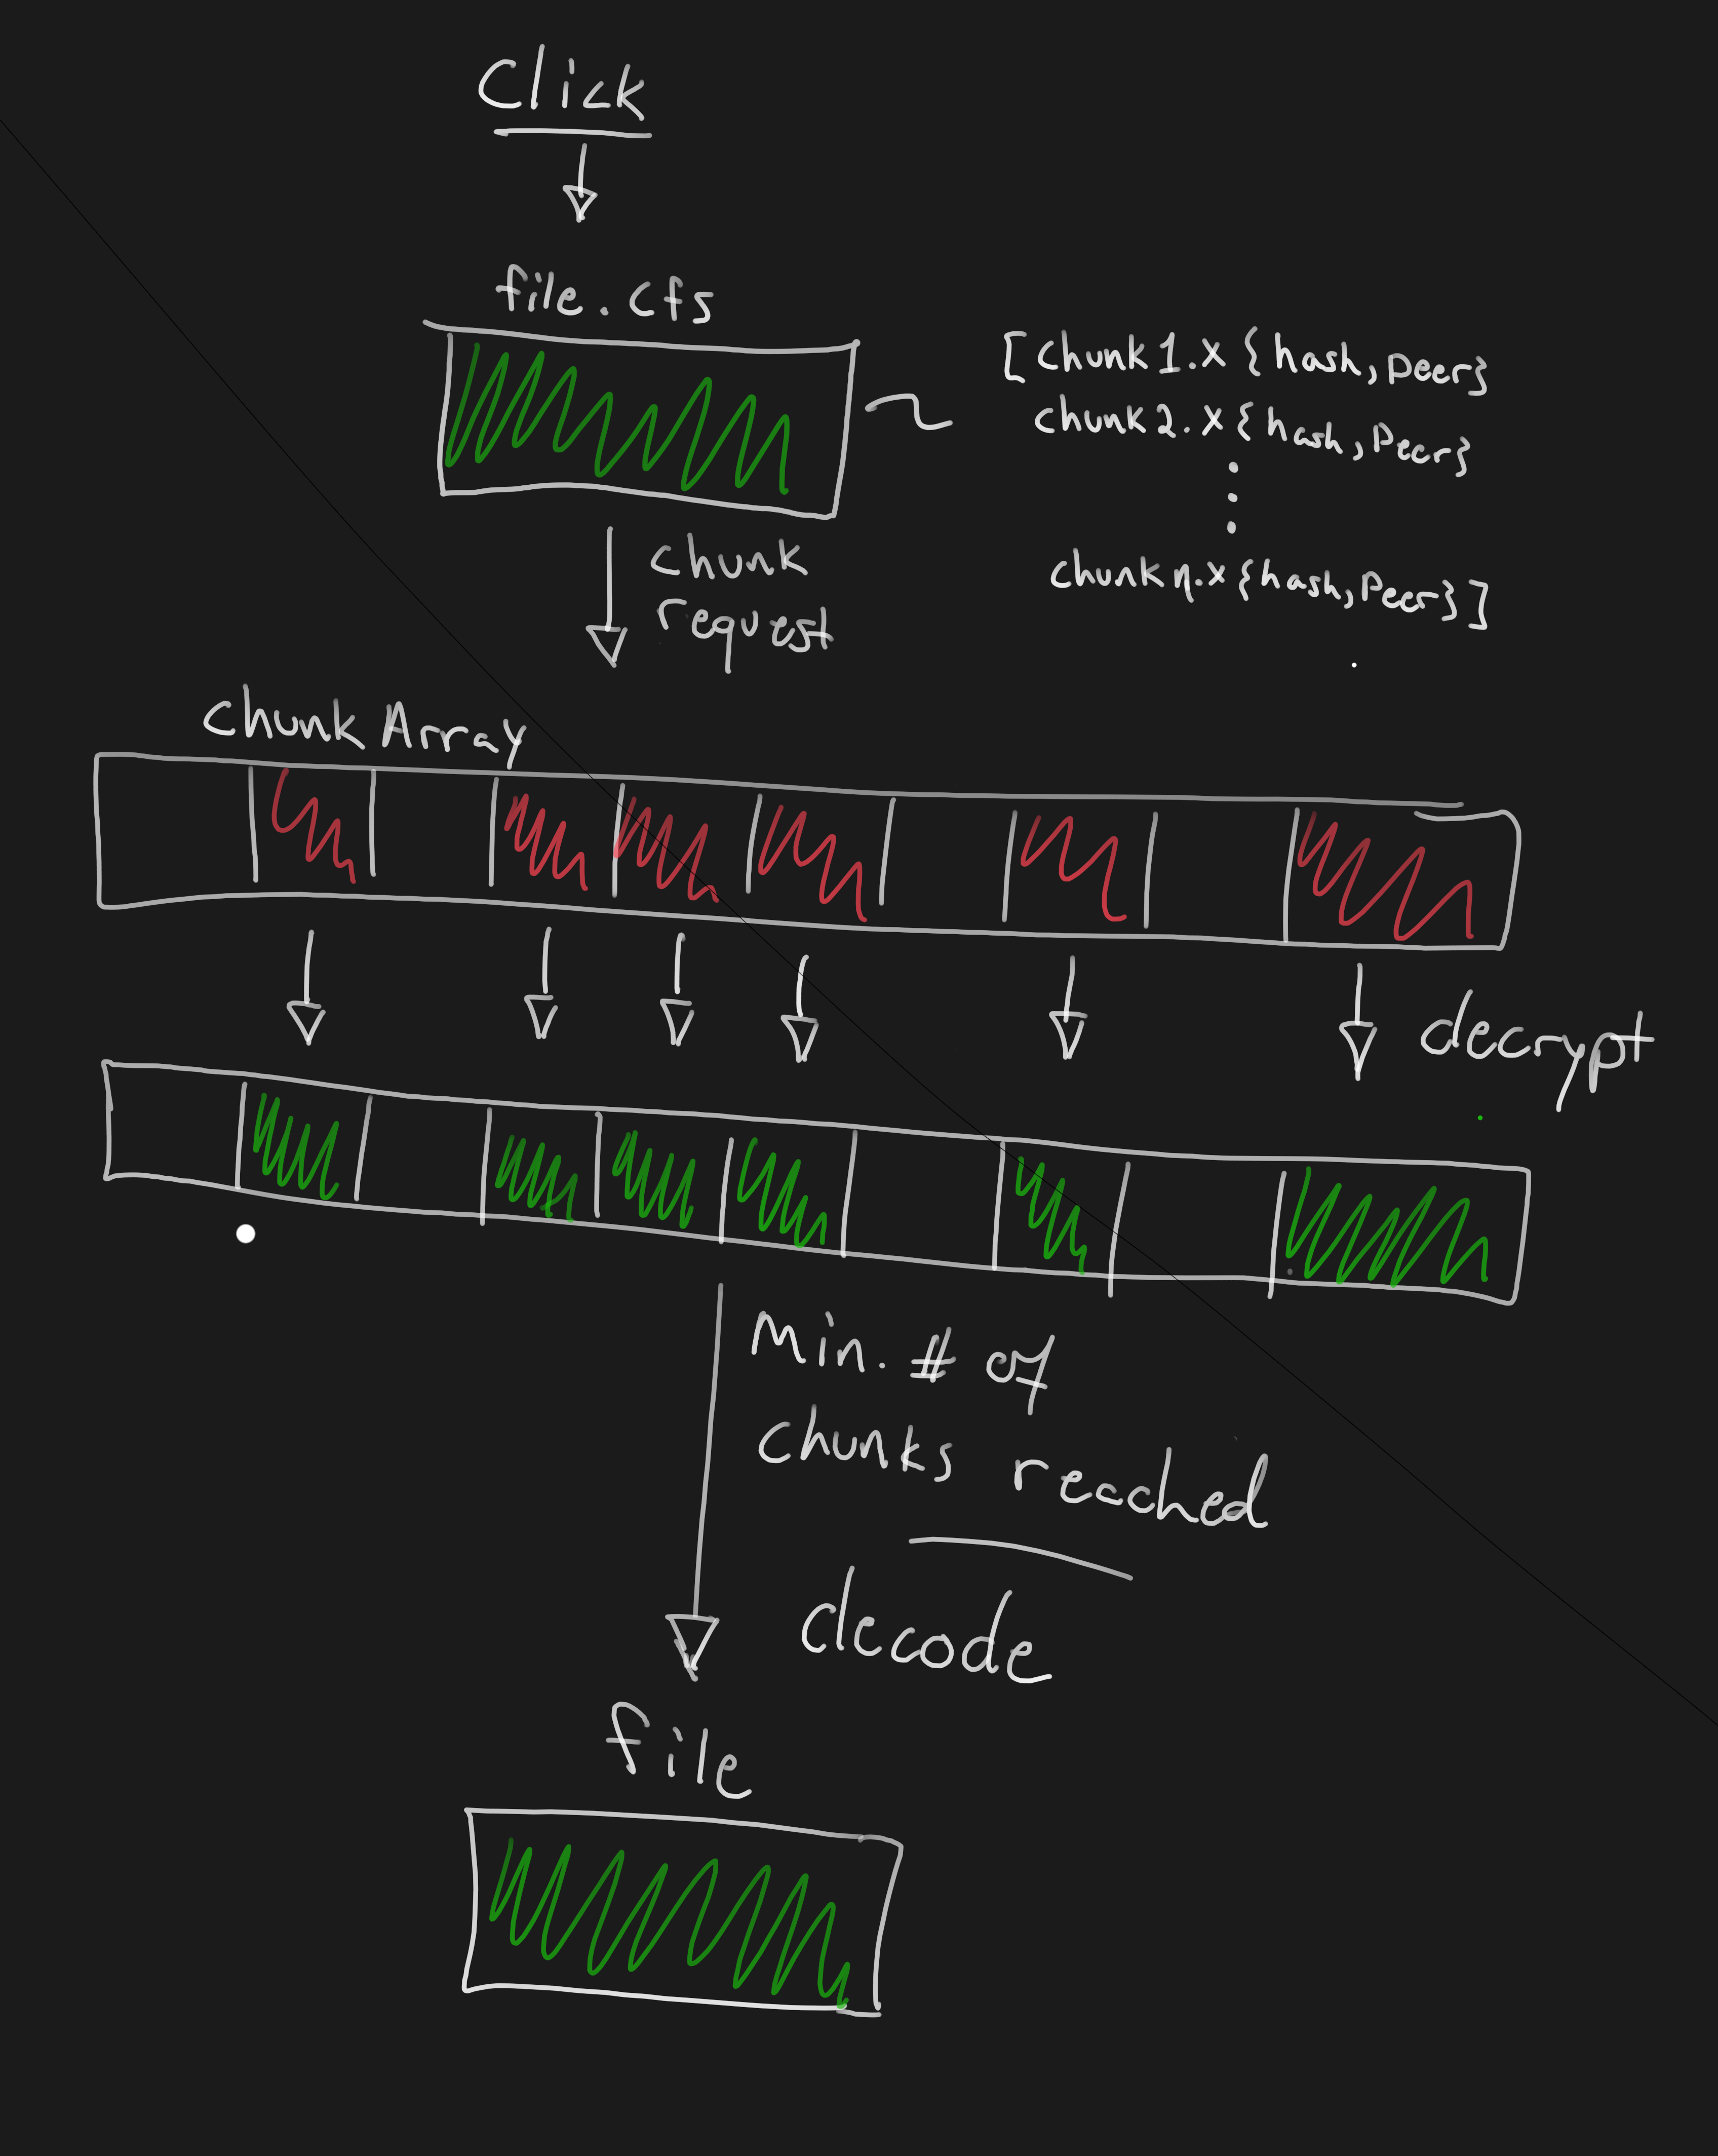 Click
file.cfs
[chunk1.x{hash,peer}
chunk2.x{hash,Peer}
chunkn.x{hash,Peer}]
chunk
request
chunk Array
decrypt
Min. # of
chunks reached
decode
file